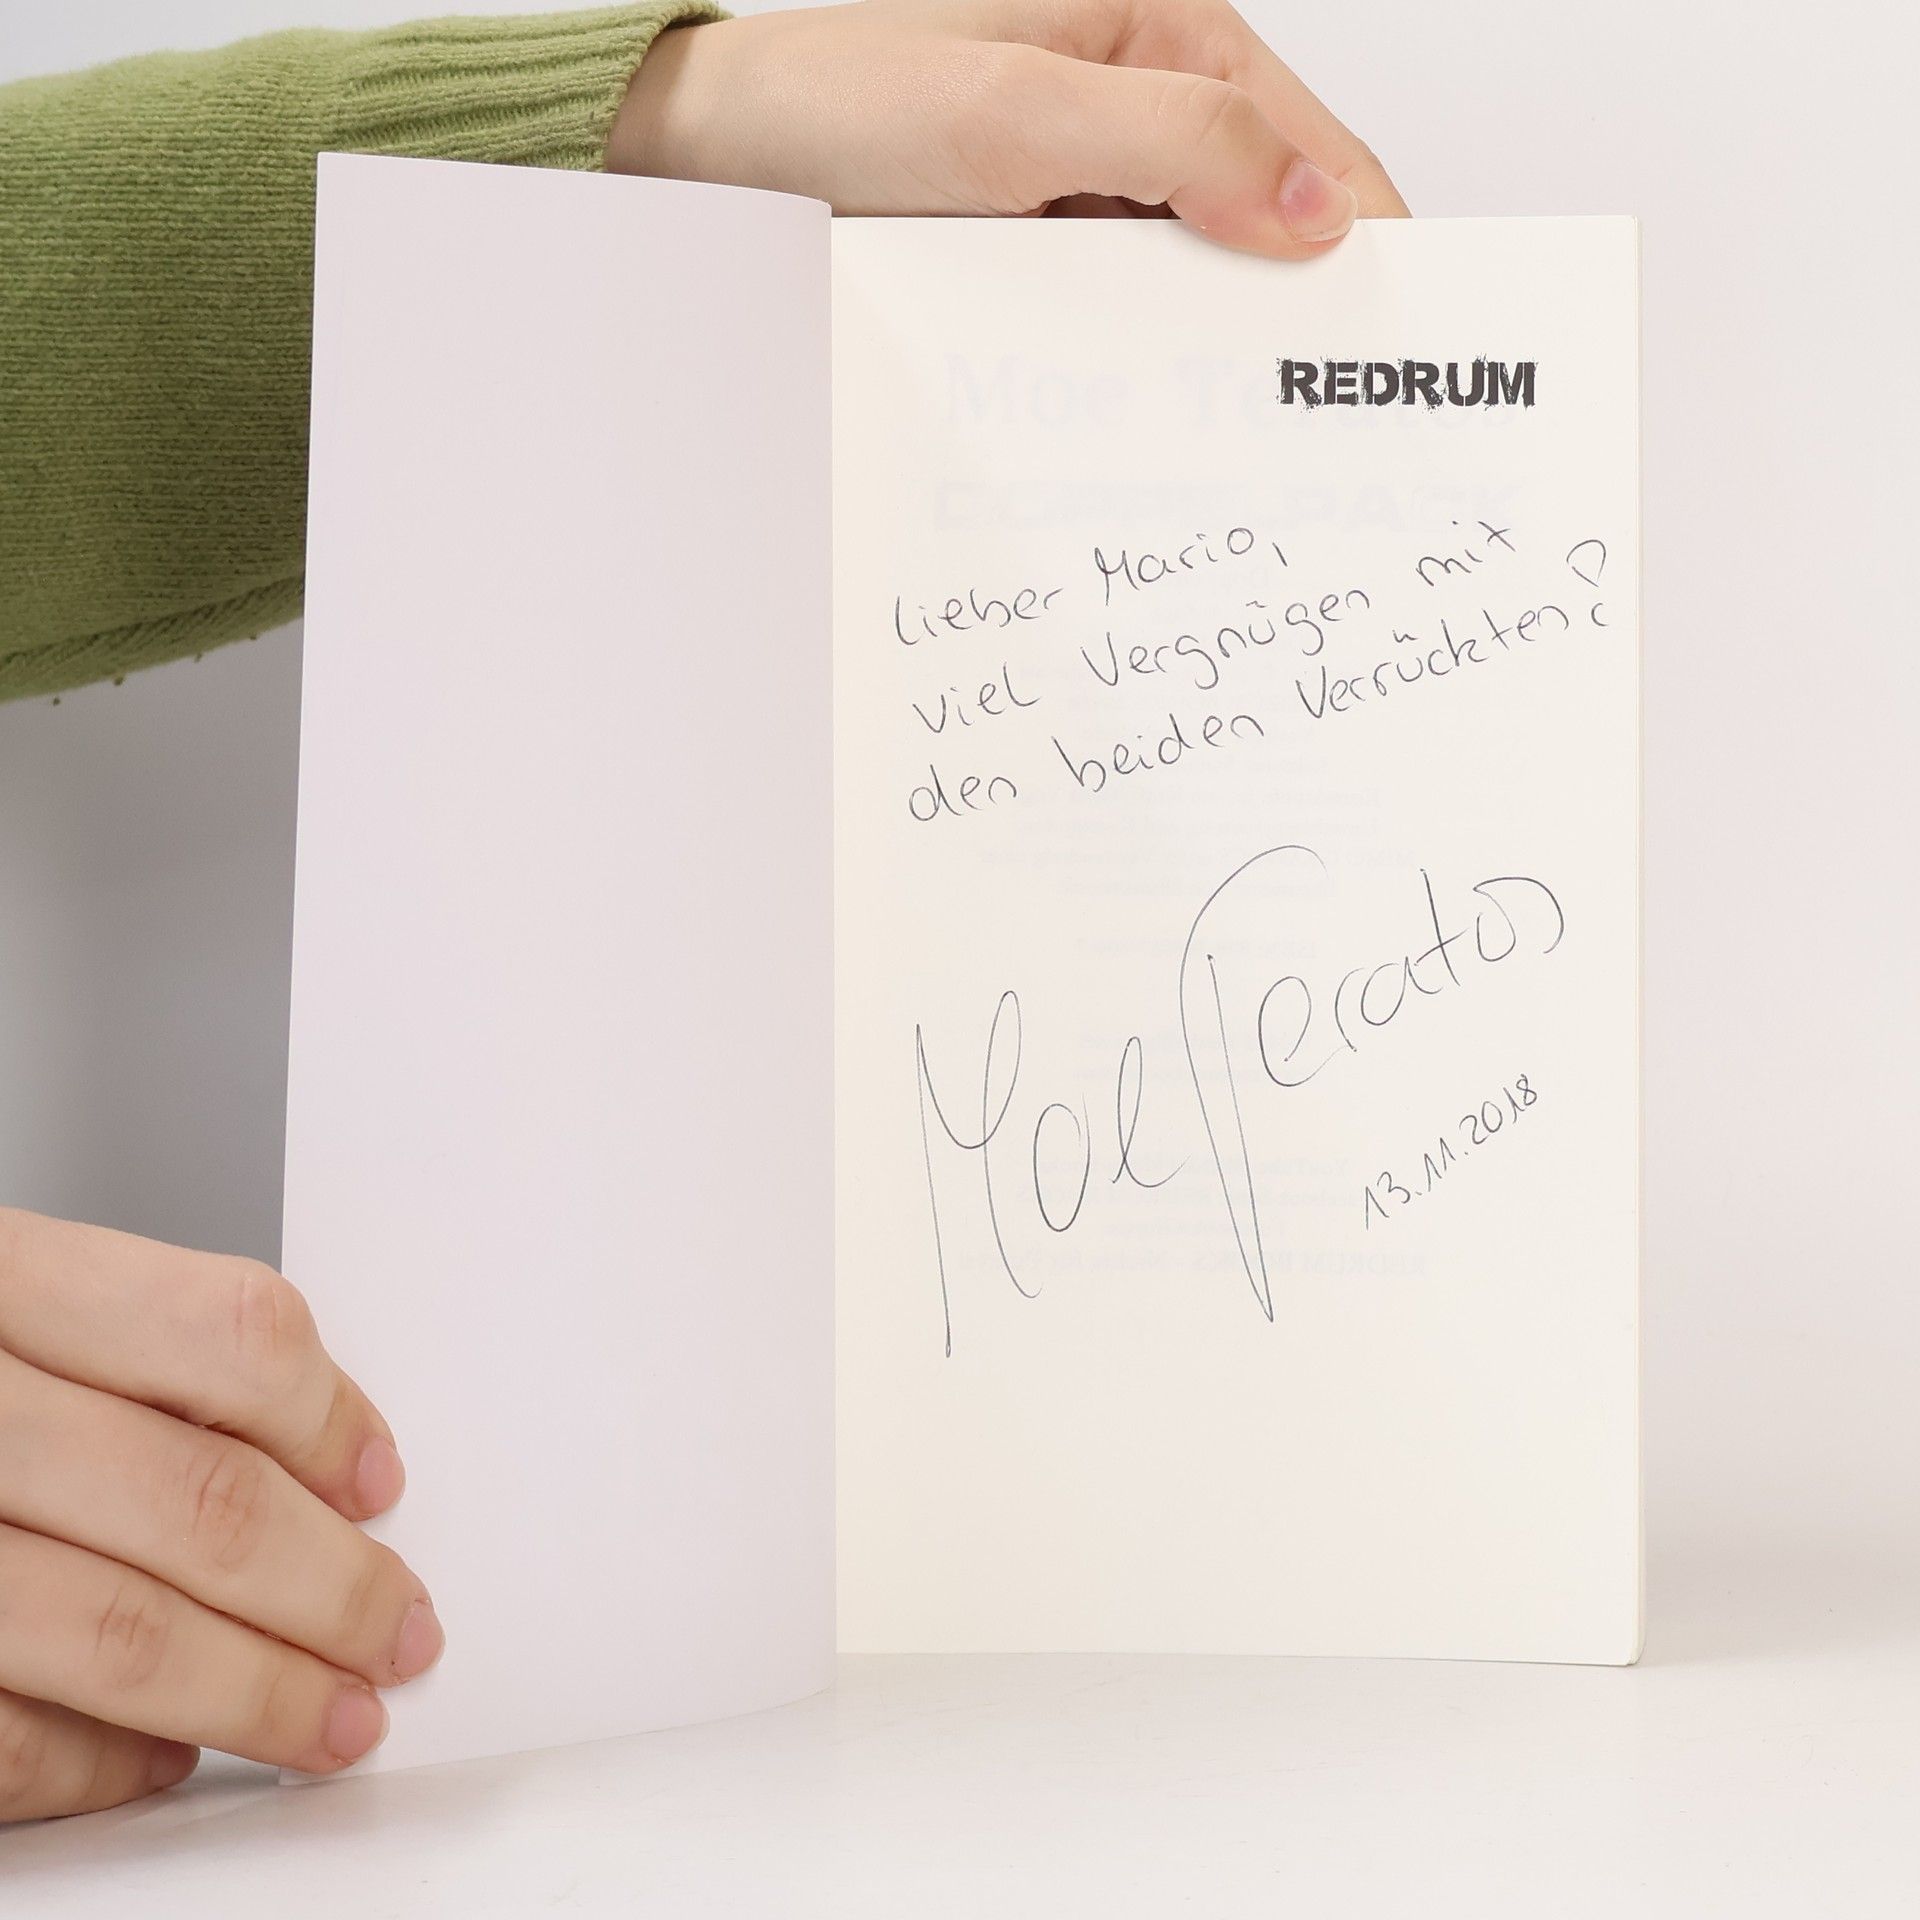 REDRUM
Lieber Mario,
viel Vergnügen mit
den beiden Verrückten!
Moe Teratos
13.11.2018